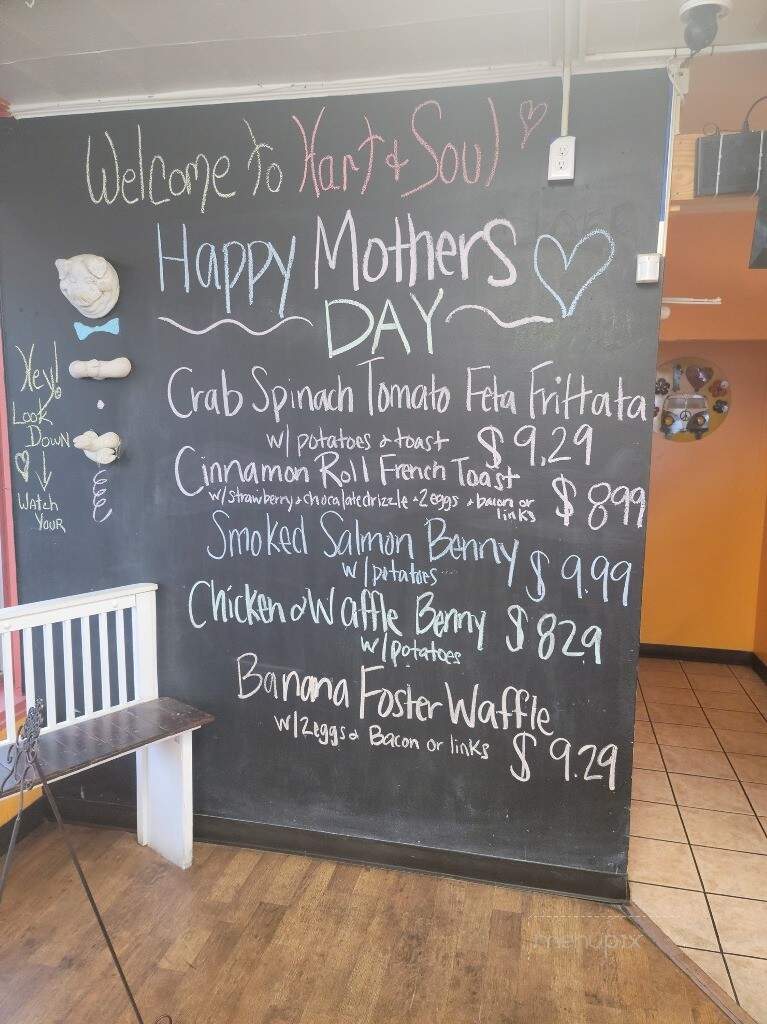 Welcome to Hart & Soul
Happy Mothers
DAY
Crab Spinach Tomato Feta Frittata
w/ potatoes & toast $9.29
Cinnamon Roll French Toast
w/ strawberry & chocolate drizzle + 2 eggs + bacon or links $899
Smoked Salmon Benny $9.99
w/ potatoes
Chicken & Waffle Benny $829
w/ potatoes
Banana Foster Waffle
w/ 2 eggs & Bacon or links $9.29
Hey!
Look
Down
Watch
Your
menupix